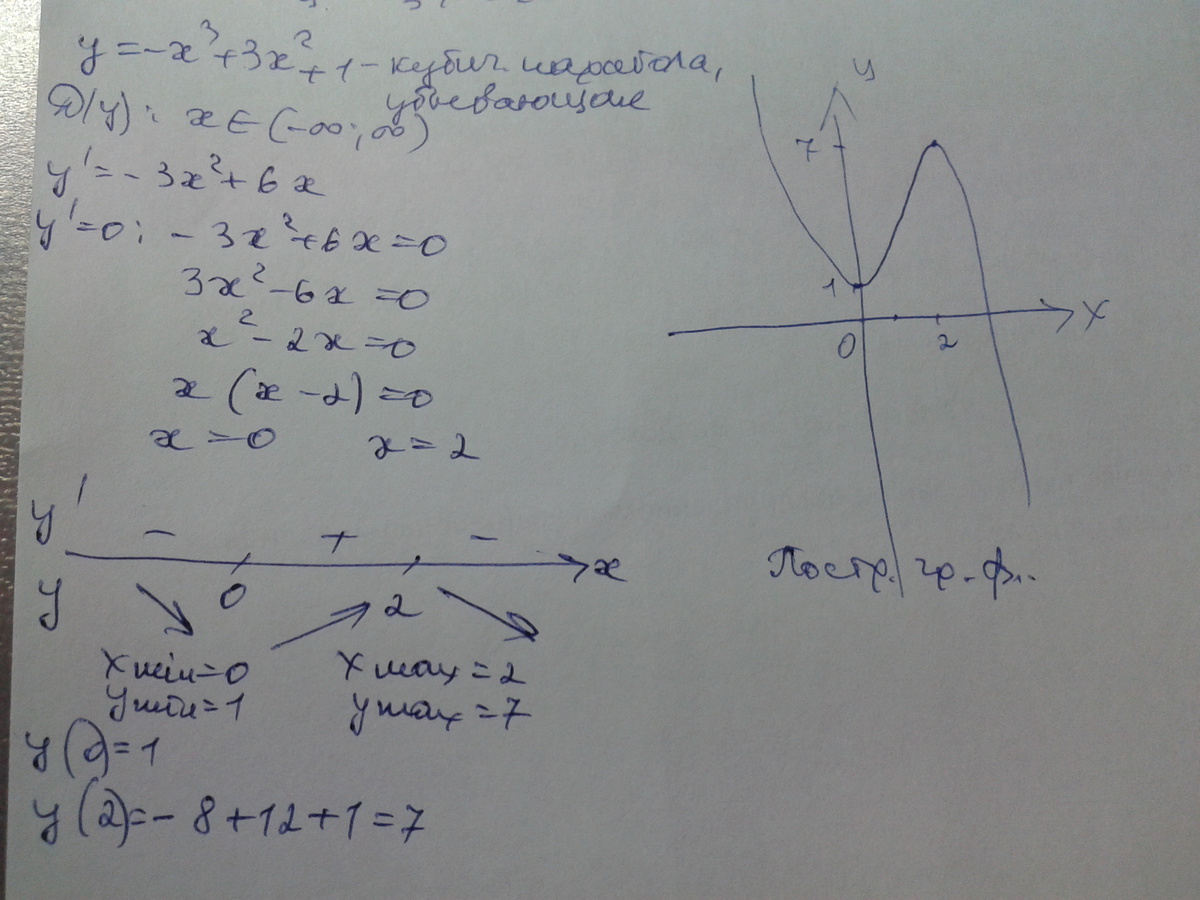 y = -x³ + 3x² + 1 - кубич. парабола,
убывающая
D(y): x ∈ (-∞; ∞)
y' = -3x² + 6x
y' = 0: -3x² + 6x = 0
3x² - 6x = 0
x² - 2x = 0
x (x - 2) = 0
x = 0 x = 2
y' - + -
x
y 0 2
xmin = 0 xmax = 2
ymin = 1 ymax = 7
y(0) = 1
y(2) = -8 + 12 + 1 = 7
y
7
1
0 2 x
Постр. гр. ф.